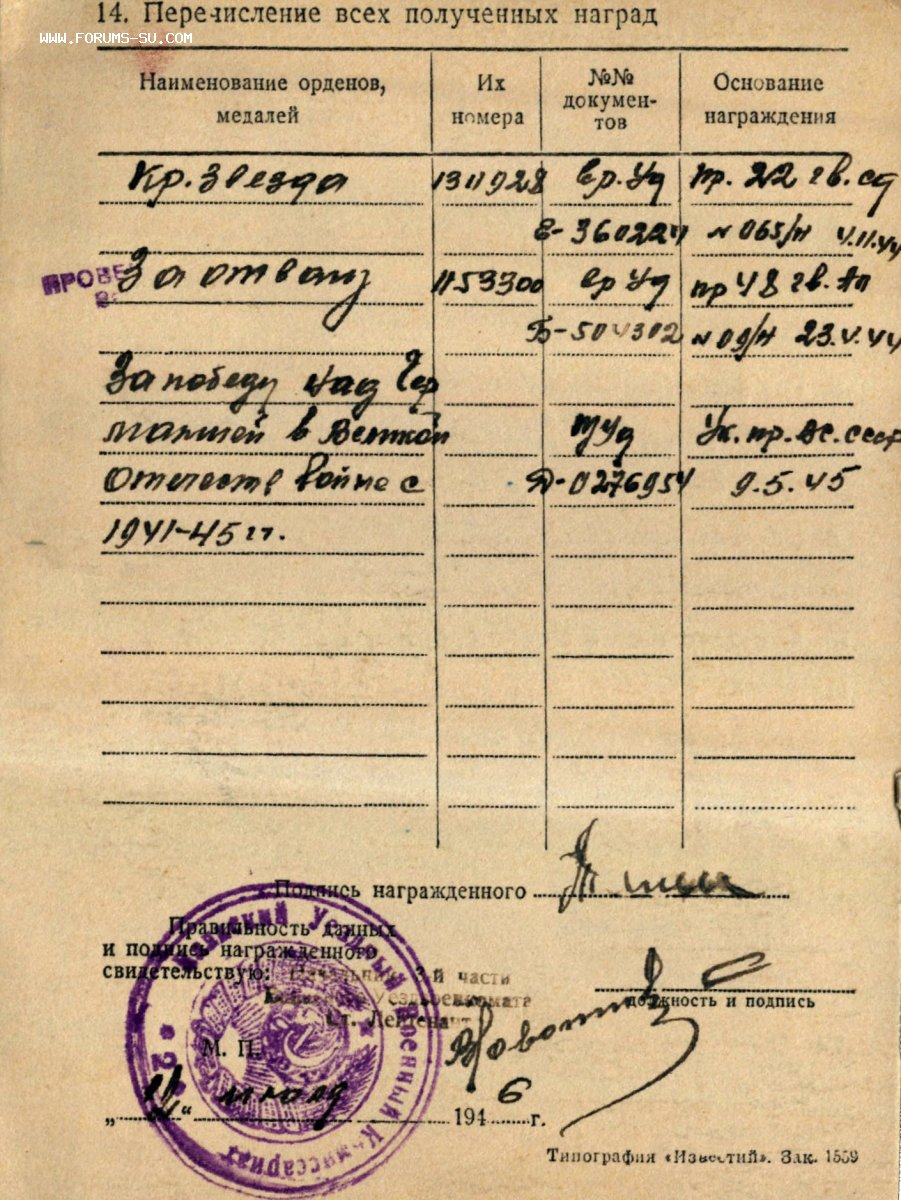 14. Перечисление всех полученных наград
WWW.FORUMS-SU.COM
Наименование орденов, медалей
Их номера
№№ документов
Основание награждения
Кр. Звезда 1311928 вр. уд пр. 22 гв. сд
Е-360224 № 065/н 4.11.44
ПРОВЕ
За отвагу 1153300 вр уд пр 48 гв. ап
Б-504302 № 09/н 23.V.44
За победу над Гер
манией в Великой уд Ук. пр. ВС. СССР
Отечеств войне с Д-0276954 9.5.45
1941-45 гг.
Подпись награжденного
Правильность данных
и подпись награжденного
свидетельствую: Начальник 3-й части
Уездвоенкомата
должность и подпись
Ст. Лейтенант
М. П.
Уездный Военный Комиссариат
"12" июля 1946 г.
Типография «Известий». Зак. 1559